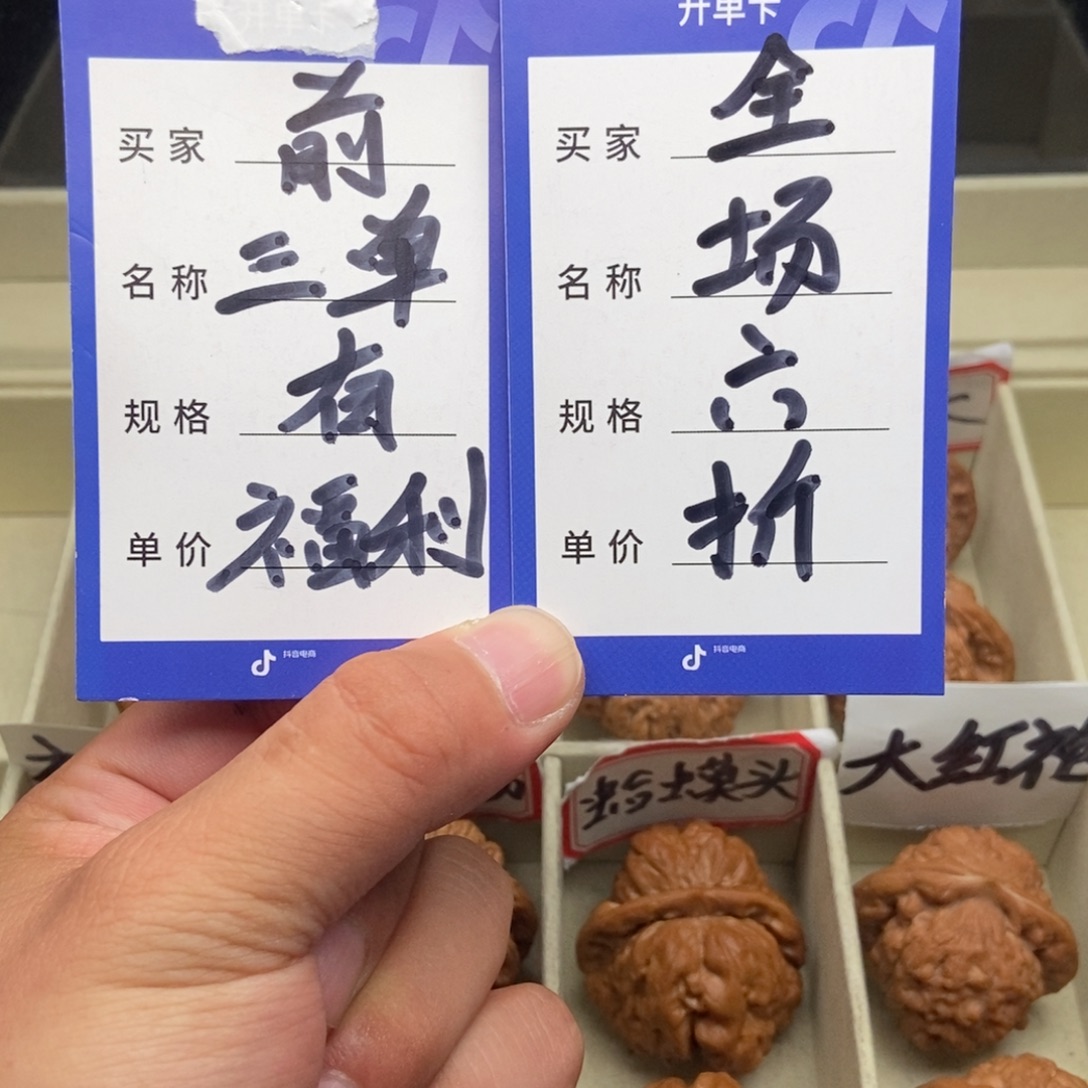 开单卡
买家 前
名称 三单
规格 有
单价 福利
抖音电商
开单卡
买家 全
名称 场
规格 六
单价 折
抖音电商
大红袍